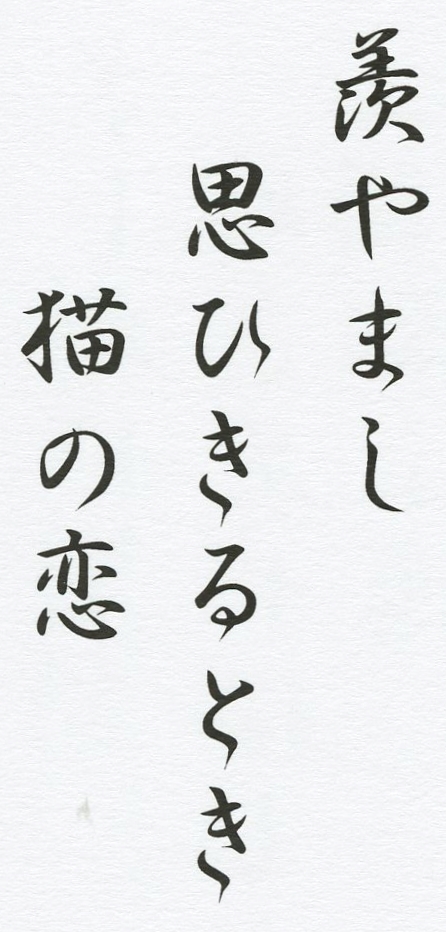 羨やまし
思ひきるとき
猫の恋